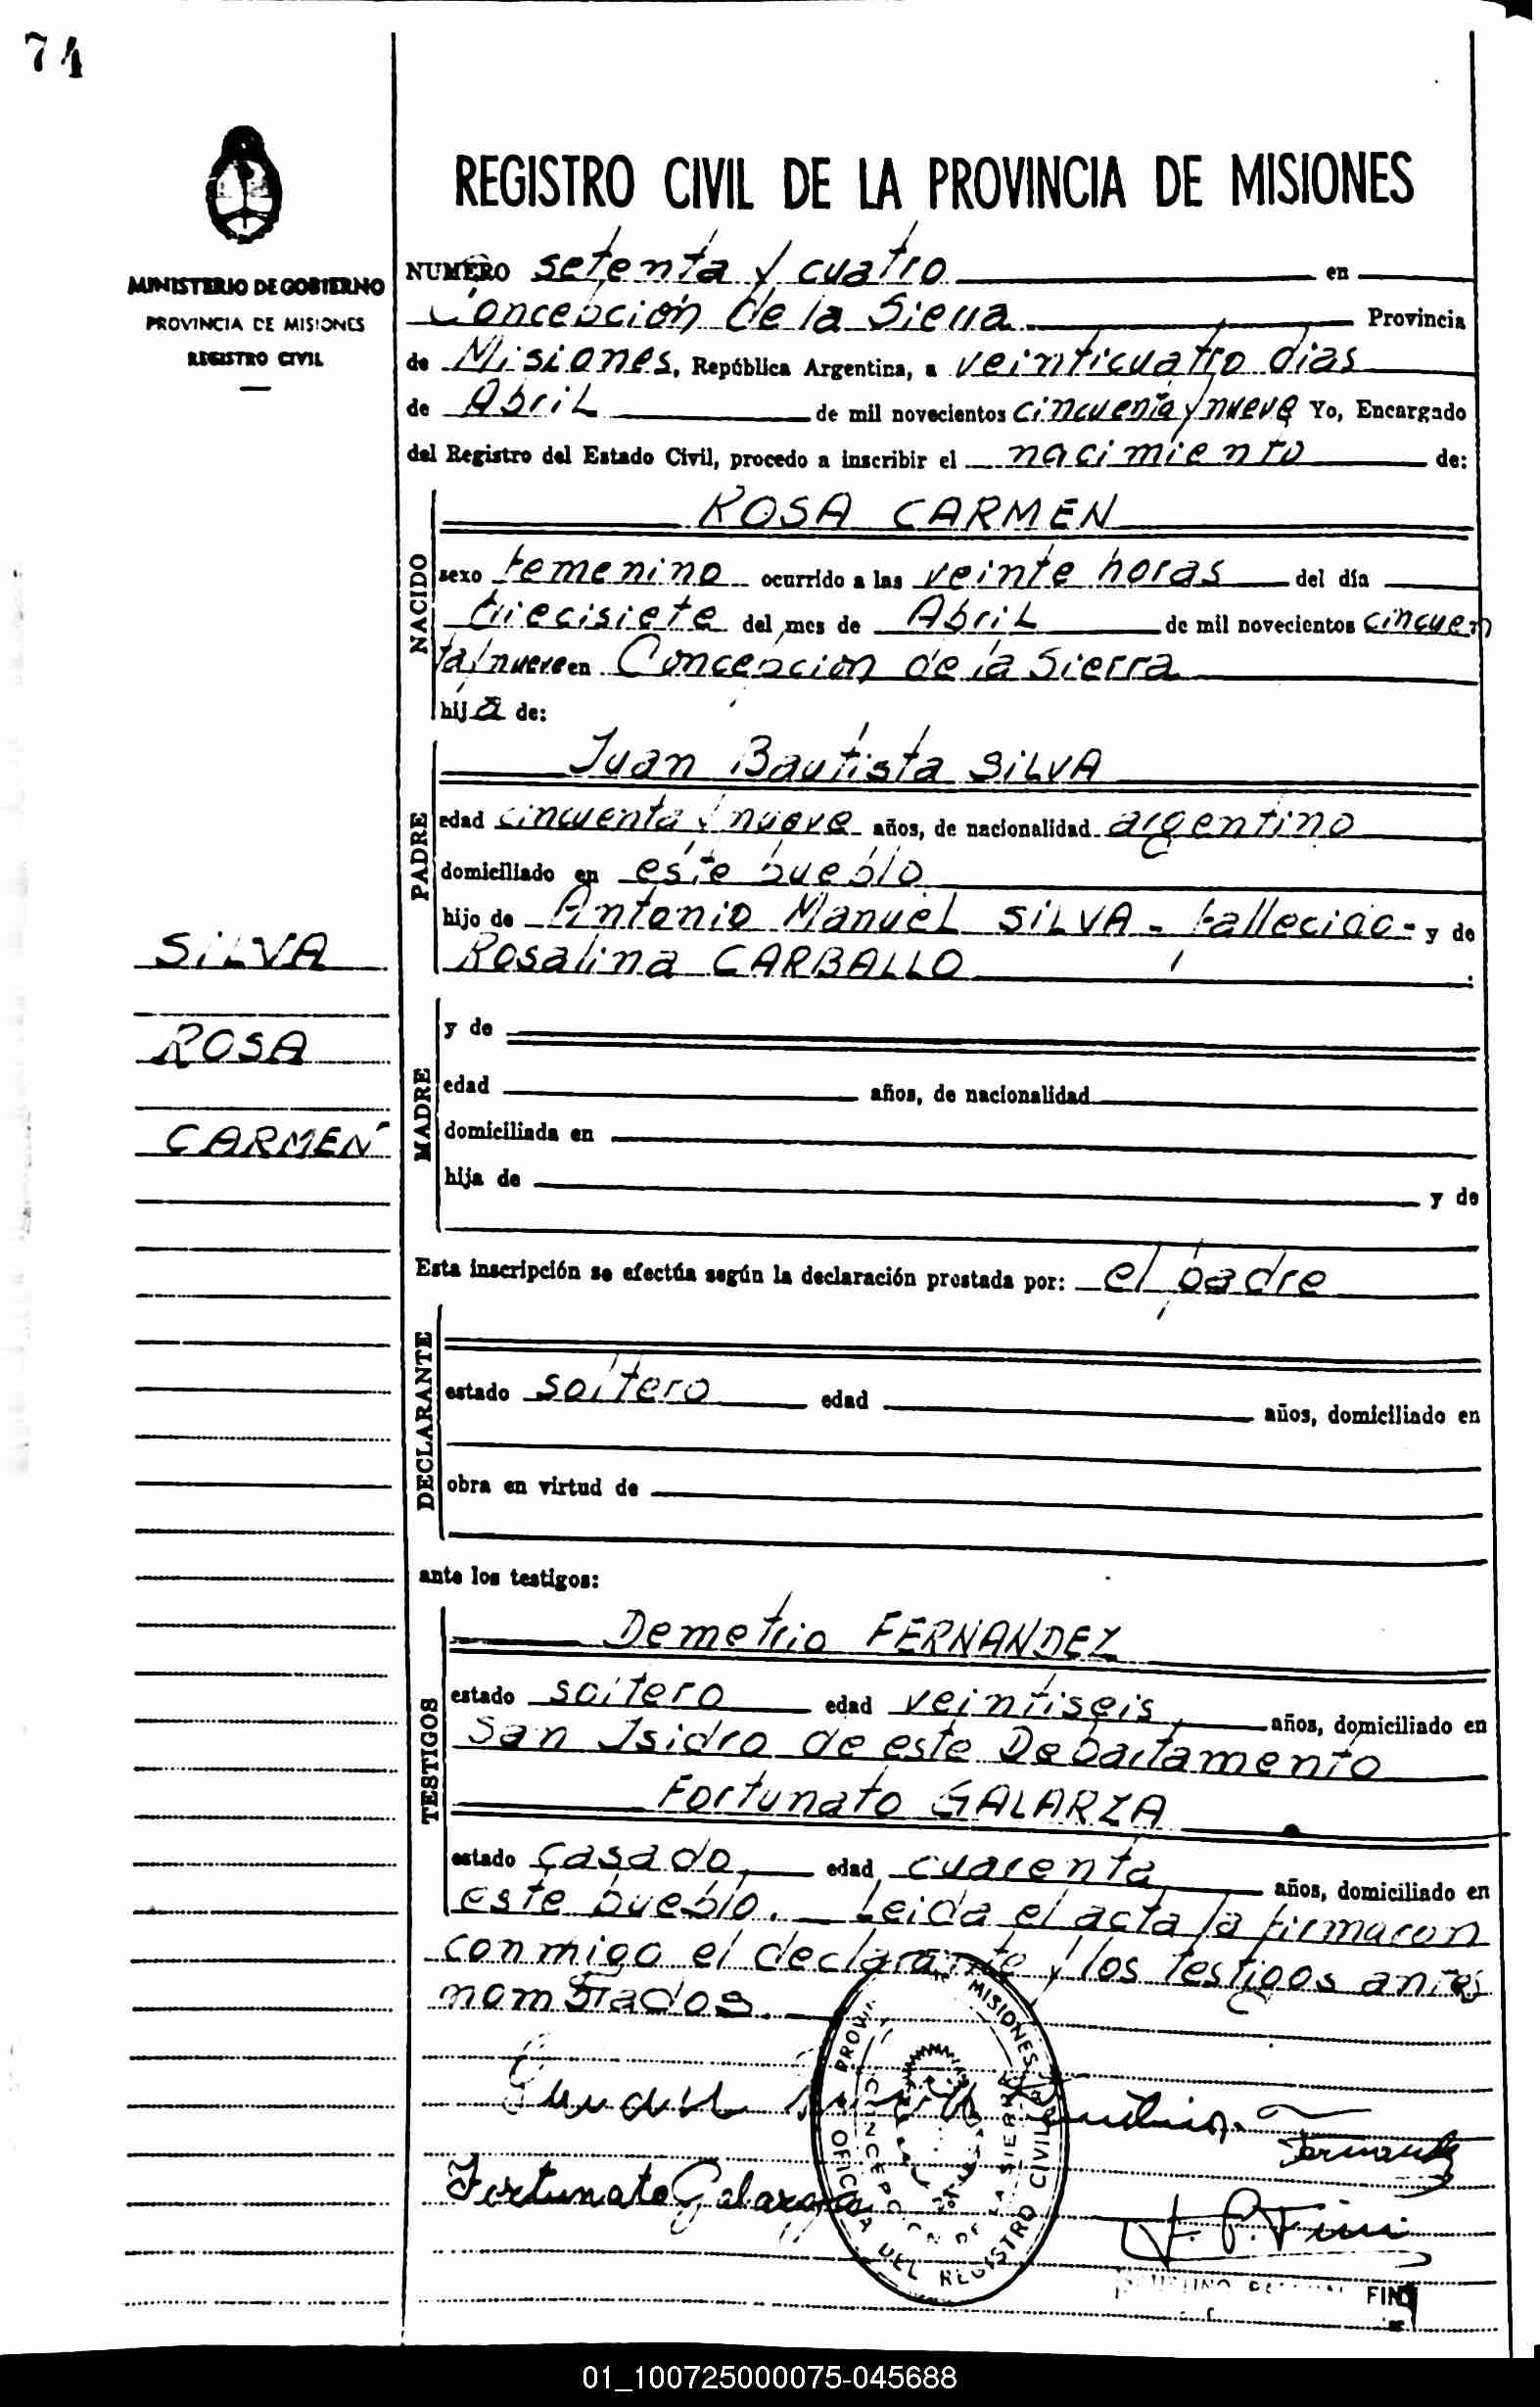 74
MINISTERIO DE GOBIERNO
PROVINCIA DE MISIONES
REGISTRO CIVIL
SILVA
ROSA
CARMEN
REGISTRO CIVIL DE LA PROVINCIA DE MISIONES
NUMERO setenta y cuatro en
Concepción de la Sierra Provincia
de Misiones, República Argentina, a veinticuatro días
de Abril de mil novecientos cincuenta y nueve Yo, Encargado
del Registro del Estado Civil, procedo a inscribir el nacimiento de:
NACIDO
ROSA CARMEN
sexo femenino ocurrido a las veinte horas del día
diecisiete del mes de Abril de mil novecientos cincuen
ta y nueve en Concepción de la Sierra
hija de:
PADRE
Juan Bautista SILVA
edad cincuenta y nueve años, de nacionalidad argentino
domiciliado en este pueblo
hijo de Antonio Manuel SILVA - fallecido - y de
Rosalina CARBALLO
MADRE
y de
edad años, de nacionalidad
domiciliada en
hija de y de
Esta inscripción se efectúa según la declaración prestada por: el padre
DECLARANTE
estado soltero edad años, domiciliado en
obra en virtud de
ante los testigos:
TESTIGOS
Demetrio FERNANDEZ
estado soltero edad veintiseis, años, domiciliado en
San Isidro de este Departamento
Fortunato GALARZA
estado casado, edad cuarenta, años, domiciliado en
este pueblo. Leida el acta la firmaron
conmigo el declarante y los testigos antes
nombrados.
PROVINCIA MISIONES
OFICINA DEL REGISTRO CIVIL
CONCEPCION DE LA SIERRA
Fernandez
Fortunato Galarza
FINI
01_100725000075-045688